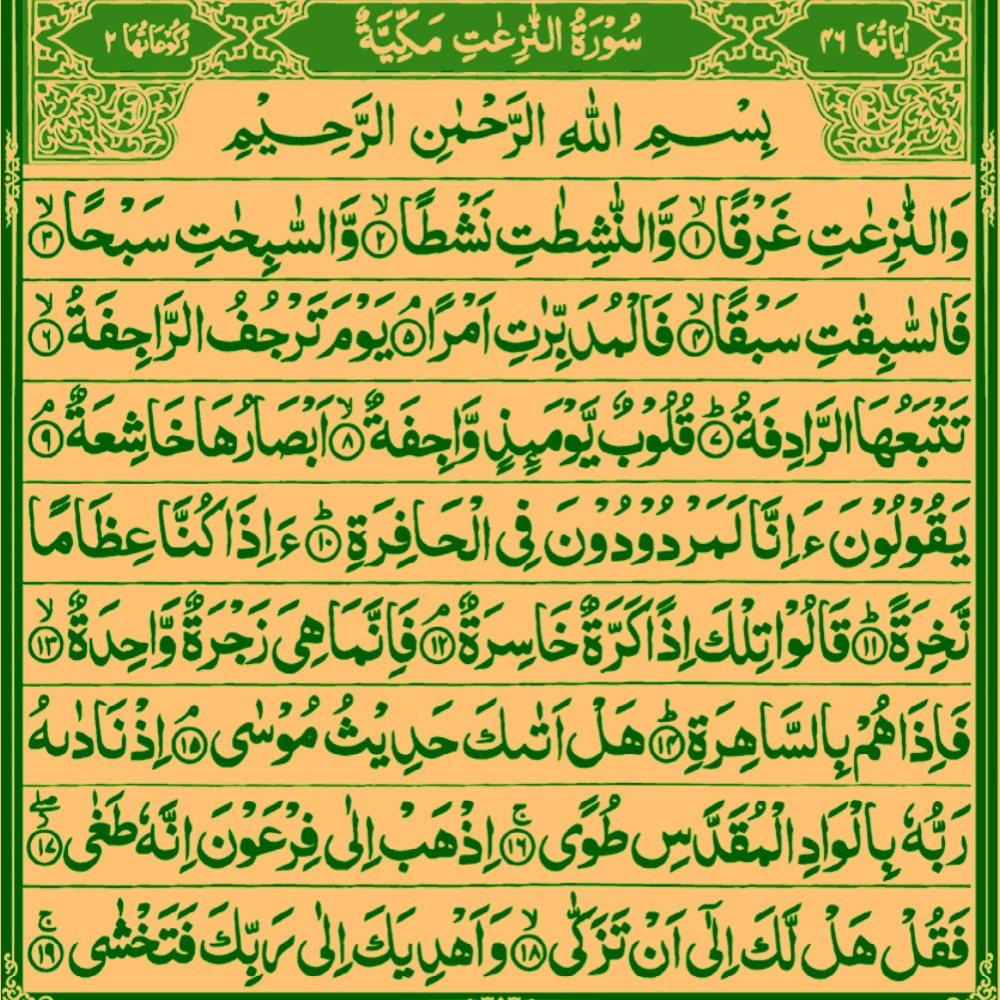 اٰيَاتُهَا ٤٦ سُوْرَةُ النّٰزِعٰتِ مَكِّيَّةٌ رُكُوْعَاتُهَا ٢
بِسْمِ اللّٰهِ الرَّحْمٰنِ الرَّحِيْمِ
وَالنّٰزِعٰتِ غَرْقًا ۙ﴿۱﴾ وَّالنّٰشِطٰتِ نَشْطًا ۙ﴿۲﴾ وَّالسّٰبِحٰتِ سَبْحًا ۙ﴿۳﴾
فَالسّٰبِقٰتِ سَبْقًا ۙ﴿۴﴾ فَالْمُدَبِّرٰتِ اَمْرًا ۘ﴿۵﴾ يَوْمَ تَرْجُفُ الرَّاجِفَةُ ۙ﴿۶﴾
تَتْبَعُهَا الرَّادِفَةُ ؕ﴿۷﴾ قُلُوْبٌ يَّوْمَىِٕذٍ وَّاجِفَةٌ ۙ﴿۸﴾ اَبْصَارُهَا خَاشِعَةٌ ۘ﴿۹﴾
يَقُوْلُوْنَ ءَاِنَّا لَمَرْدُوْدُوْنَ فِى الْحَافِرَةِ ؕ﴿۱۰﴾ ءَاِذَا كُنَّا عِظَامًا
نَّخِرَةً ؕ﴿۱۱﴾ قَالُوْا تِلْكَ اِذًا كَرَّةٌ خَاسِرَةٌ ۘ﴿۱۲﴾ فَاِنَّمَا هِىَ زَجْرَةٌ وَّاحِدَةٌ ۙ﴿۱۳﴾
فَاِذَا هُمْ بِالسَّاهِرَةِ ؕ﴿۱۴﴾ هَلْ اَتٰىكَ حَدِيْثُ مُوْسٰى ۘ﴿۱۵﴾ اِذْ نَادٰىهُ
رَبُّهٗ بِالْوَادِ الْمُقَدَّسِ طُوًى ۚ﴿۱۶﴾ اِذْهَبْ اِلٰى فِرْعَوْنَ اِنَّهٗ طَغٰى ۖ﴿۱۷﴾
فَقُلْ هَلْ لَّكَ اِلٰٓى اَنْ تَزَكّٰى ۙ﴿۱۸﴾ وَاَهْدِيَكَ اِلٰى رَبِّكَ فَتَخْشٰى ۚ﴿۱۹﴾